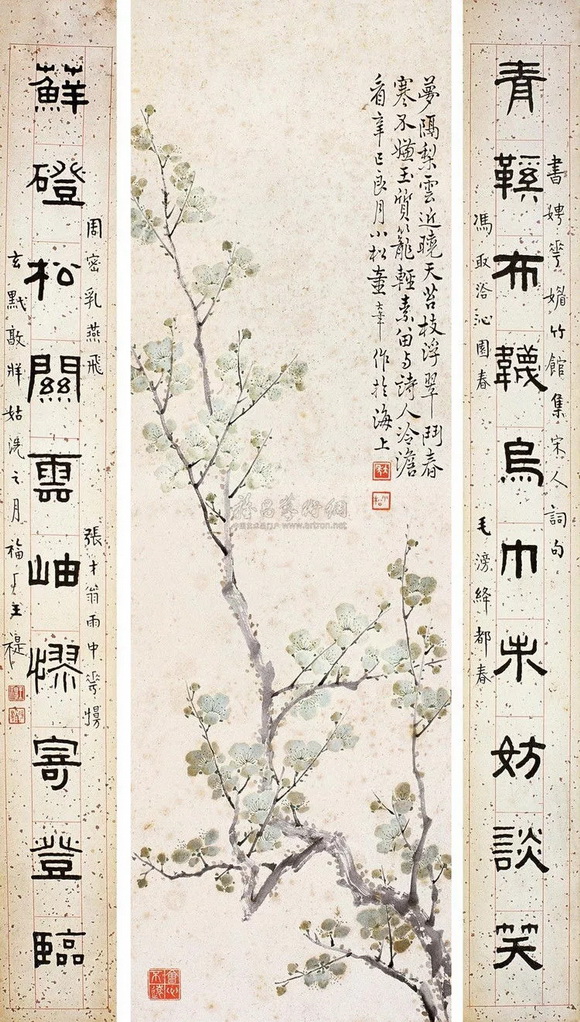 書娉花媚竹館集宋人詞句
青鞵布韈烏巾未妨談笑
馮取洽沁園春 毛滂絳都春
夢隔梨雲近曉天苔枝浮翠鬥春
寒不嫌玉質籠輕素留与詩人冷澹
看辛巳良月小松童 作於海上
周密乳燕飛 張才翁雨中花慢
蘚磴松關雲岫憀寄登臨
玄黓敦牂姑洗之月福厂王禔
雅昌藝術網
www.artron.net